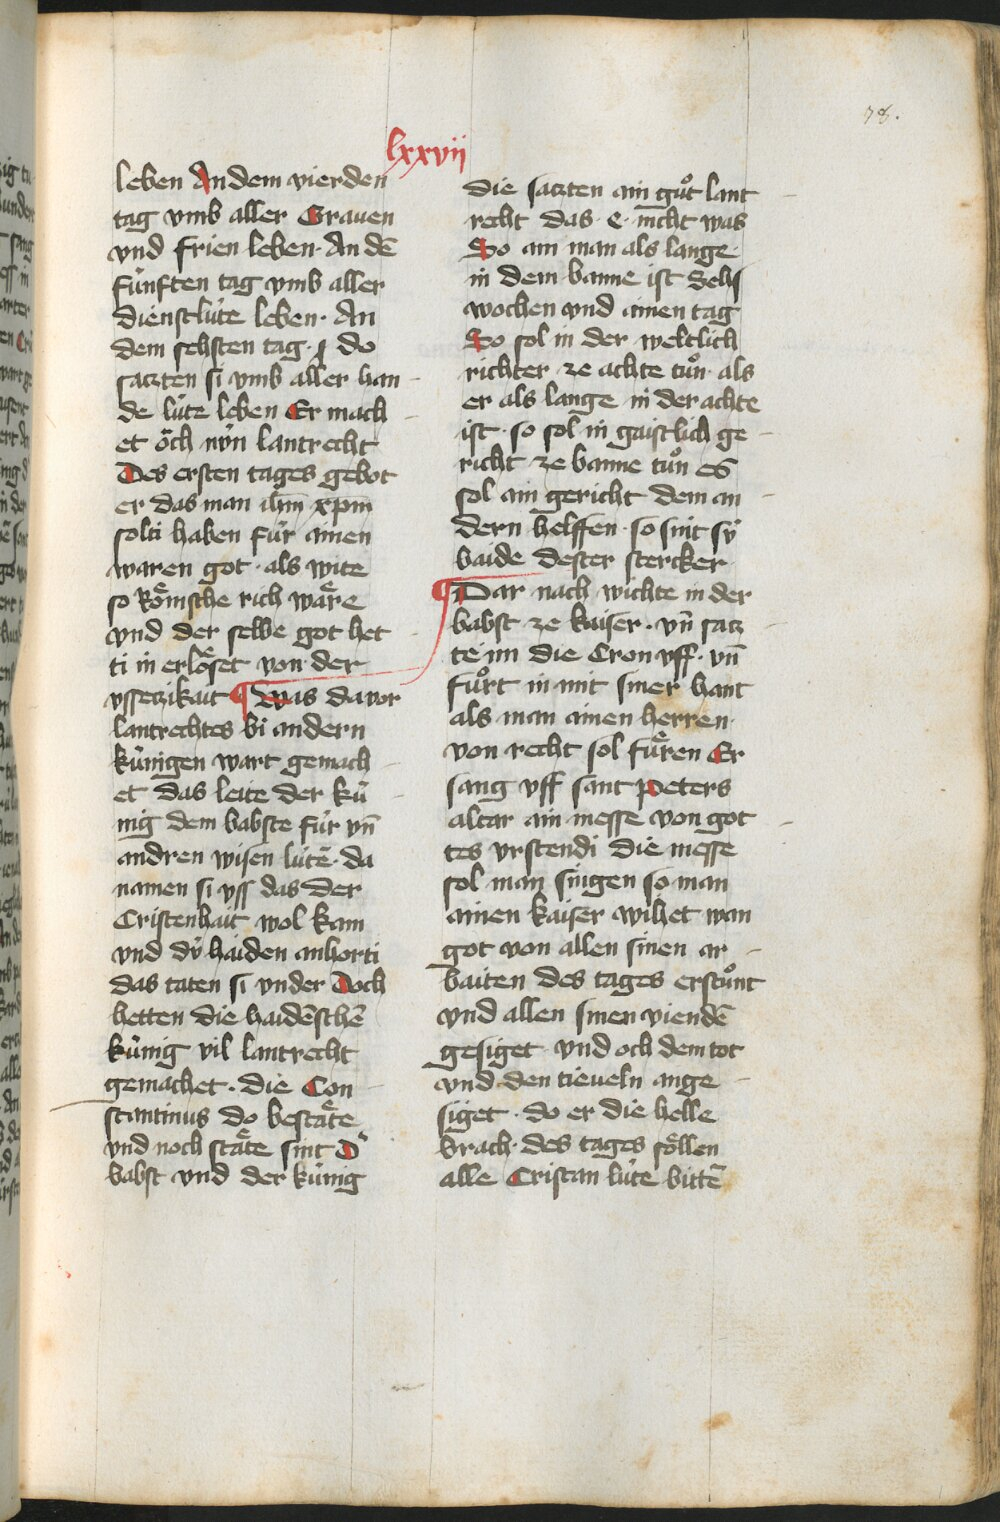 78.
lxxvij
leben An dem vierden
tag vmb aller Grauen
vnd frien leben · An dē
fúnften tag vmb aller
dienstlúte leben · An
dem sehsten tag · do
saczten si vmb aller han
de lúte leben Er mach
et ŏch nún lantrecht
Des ersten tages gebot
er das man ihm̄ xpm̄
solti haben fúr ainen
waren got · als wite
so Rŏmsche rich wăre
vnd der selbe got het
ti in erlŏset von der
vsseczikait ¶ Was da vor
lantrechtes bi andern
kúnigen wart gemach
et das leite der kú
nig dem babste fúr vn̄
andren wisen lútē · da
namen si vss das der
Cristenhait wol kam
vnd dú haiden anhorti
das taten si vnder Doch
hetten die haidēschē
kúnig vil lantrecht
gemachet · die Con
stantinus do bestăte
vnd noch stăte sint D᾽
babst vnd der kúnig
die saczten ain gůt lant
recht das · e · nicht was
So ain man als lange ·
in dem banne ist Sehs
wochen vnd ainen tag
So sol in der weltlich
richter ze achte tůn · als
er als lange in der achte
ist · so sol in gaistlich ge
richt ze banne tůn es
sol ain gericht dem an
dern helffen · so sint sú
baide dester stercker
¶ Dar nach wichte in der
babst ze kaiser · vn̄ sacz
te im die Cron vff · vn̄
fůrt in mit siner hant
als man ainen herren
von recht sol fŭren Er
sang vff sant peters
altar ain messe von got
tes vrstendi die messe
sol man singen so man
ainen kaiser wihet wan
got von allen sinen ar
baiten des tages erstůnt
vnd allen sinen viendē
gesiget vnd och dem tot
vnd den tieueln ange
siget · do er die helle
brach · des tages sŏllen
alle Cristan lúte bittē